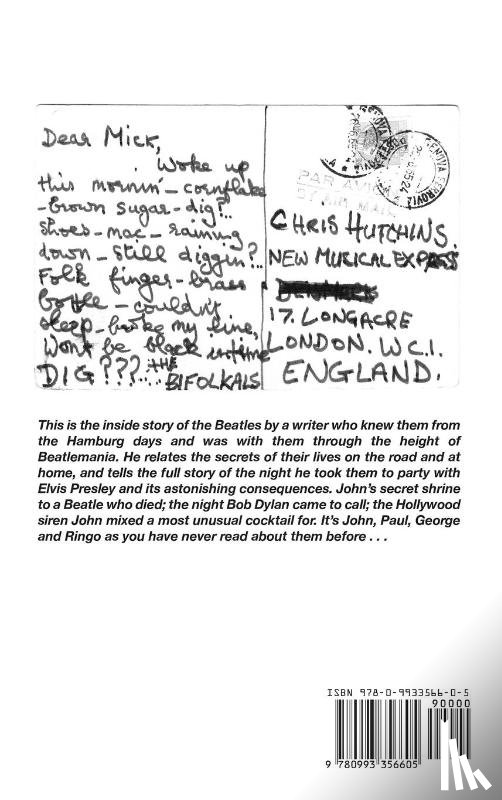 Dear Mick,
Woke up
this mornin'-cornflake
-brown sugar-dig?..
shoes-mac-raining
down-still diggin?..
Folk finger-brass
bottle-couldn't
sleep-broke my line,
Wont be black in time
DIG???....THE
BIFOLKALS
GENOVA FERROVIA
PAR AVION
BY AIR MAIL
CHRIS HUTCHINS.
NEW MUSICAL EXPRESS
17. LONGACRE
LONDON. W.C.1.
ENGLAND.
This is the inside story of the Beatles by a writer who knew them from
the Hamburg days and was with them through the height of
Beatlemania. He relates the secrets of their lives on the road and at
home, and tells the full story of the night he took them to party with
Elvis Presley and its astonishing consequences. John's secret shrine
to a Beatle who died; the night Bob Dylan came to call; the Hollywood
siren John mixed a most unusual cocktail for. It's John, Paul, George
and Ringo as you have never read about them before . . .
ISBN 978-0-9933566-0-5
90000
9 780993 356605